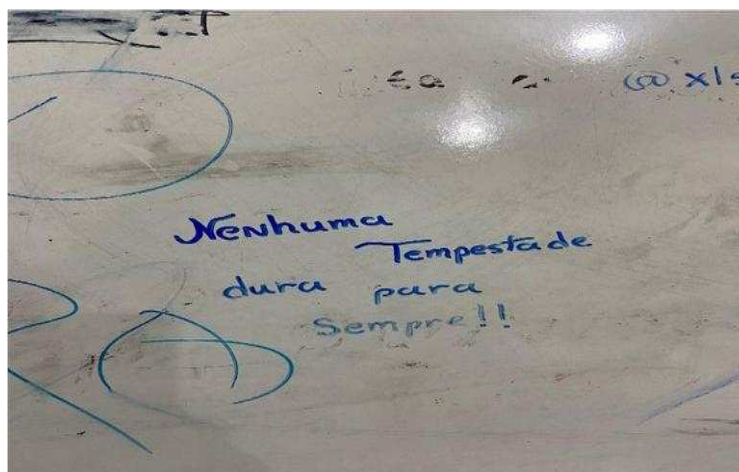 @ xls
Nenhuma
Tempestade
dura para
Sempre!!